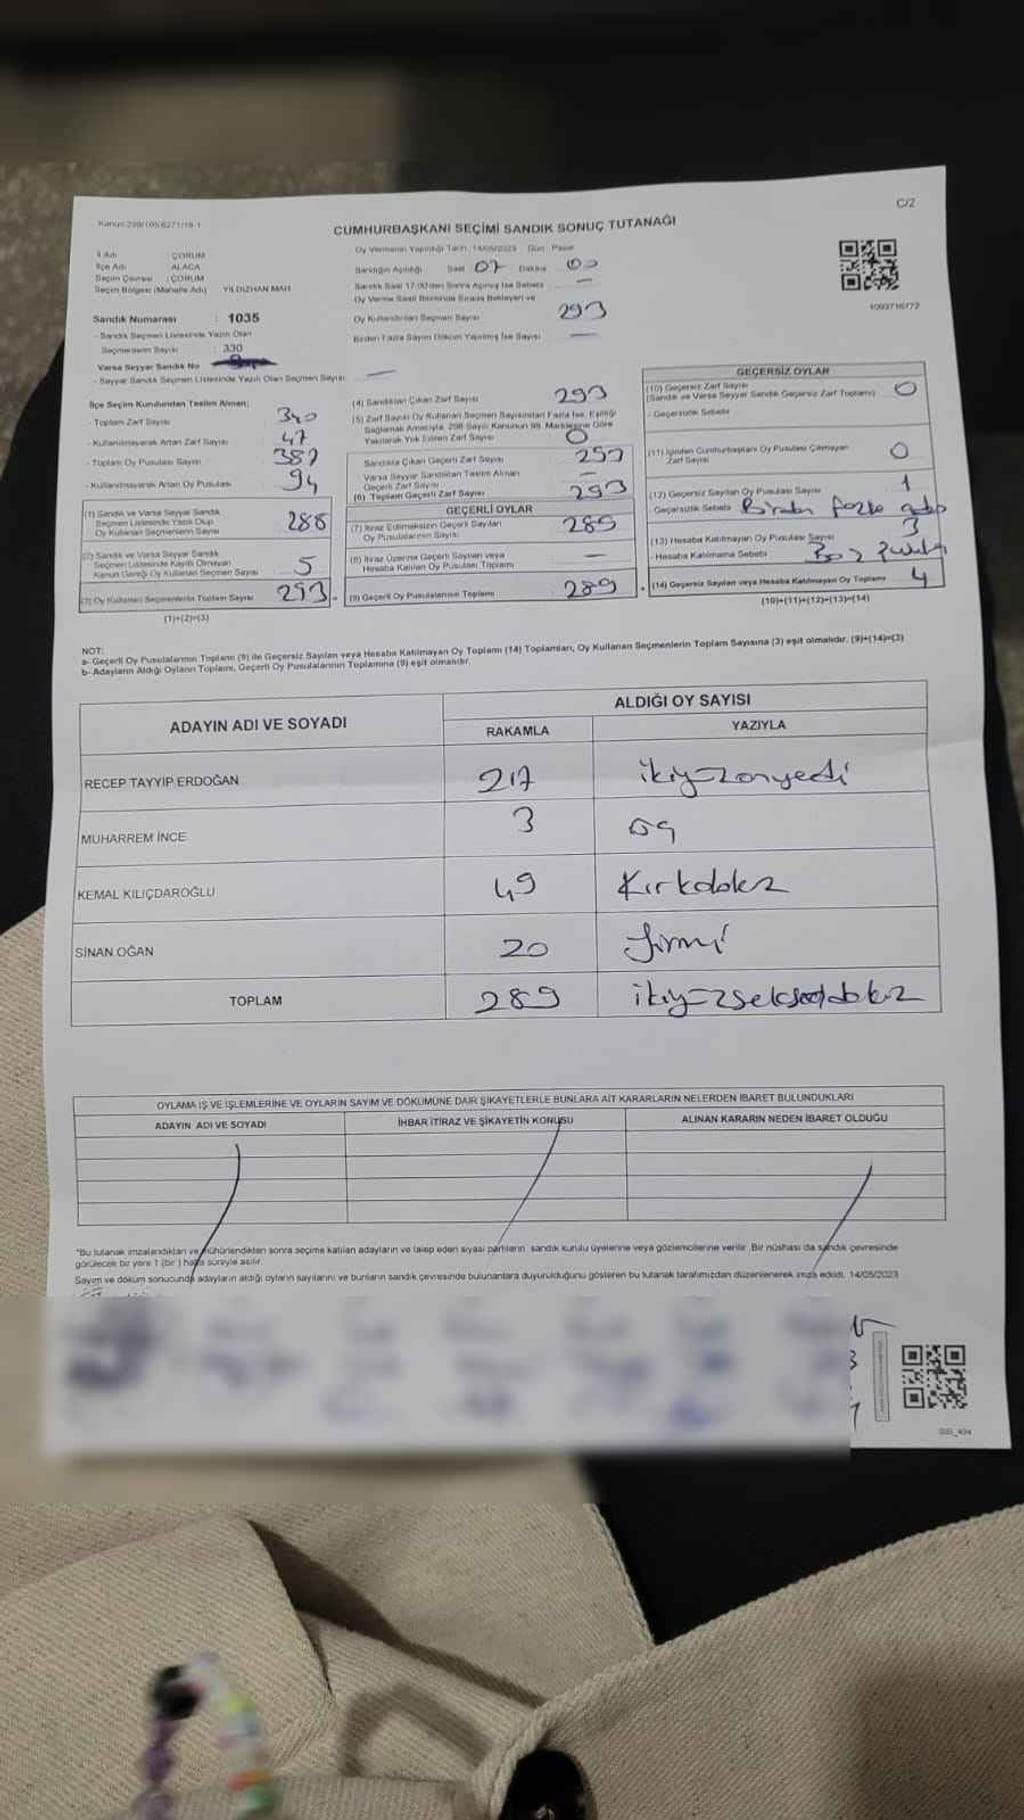 C/2
CUMHURBAŞKANI SEÇİMİ SANDIK SONUÇ TUTANAĞI
Oy Vermenin Yapıldığı Tarih : 14/05/2023 Gün : Pazar
İl Adı : ÇORUM
İlçe Adı : ALACA
Seçim Çevresi : ÇORUM
Seçim Bölgesi (Mahalle Adı) YILDIZHAN MAH
Sandık Numarası : 1035
- Sandık Seçmen Listesinde Yazılı Olan
Seçmenlerin Sayısı : 330
Varsa Seyyar Sandık No
- Seyyar Sandık Seçmen Listesinde Yazılı Olan Seçmen Sayısı : —
Sandığın Açıldığı Saat 07 Dakika 00
Sandık Saat 17:00'den Sonra Açılmış İse Sebebi —
Oy Verme Saati Bitiminde Sırada Bekleyen ve
Oy Kullandırılan Seçmen Sayısı 293
Birden Fazla Sayım Döküm Yapılmış İse Sayısı —
1093716772
İlçe Seçim Kurulundan Teslim Alınan;
- Toplam Zarf Sayısı 340
- Kullanılmayarak Artan Zarf Sayısı 47
- Toplam Oy Pusulası Sayısı 387
- Kullanılmayarak Artan Oy Pusulası 94
(1) Sandık ve Varsa Seyyar Sandık
Seçmen Listesinde Yazılı Olup
Oy Kullanan Seçmenlerin Sayısı 288
(2) Sandık ve Varsa Seyyar Sandık
Seçmen Listesinde Kayıtlı Olmayan
Kanun Gereği Oy Kullanan Seçmen Sayısı 5
(3) Oy Kullanan Seçmenlerin Toplam Sayısı 293
(1)+(2)=(3)
(4) Sandıktan Çıkan Zarf Sayısı 293
(5) Zarf Sayısı Oy Kullanan Seçmen Sayısından Fazla İse, Eşitliği
Sağlamak Amacıyla, 298 Sayılı Kanunun 98. Maddesine Göre
Yakılarak Yok Edilen Zarf Sayısı 0
Sandıkta Çıkan Geçerli Zarf Sayısı 293
Varsa Seyyar Sandıktan Teslim Alınan
Geçerli Zarf Sayısı —
(6) Toplam Geçerli Zarf Sayısı 293
GEÇERLİ OYLAR
(7) İtiraz Edilmeksizin Geçerli Sayılan
Oy Pusulalarının Sayısı 289
(8) İtiraz Üzerine Geçerli Sayılan veya
Hesaba Katılan Oy Pusulası Toplamı —
(9) Geçerli Oy Pusulalarının Toplamı 289
GEÇERSİZ OYLAR
(10) Geçersiz Zarf Sayısı
(Sandık ve Varsa Seyyar Sandık Geçersiz Zarf Toplamı) 0
- Geçersizlik Sebebi
(11) İçinden Cumhurbaşkanı Oy Pusulası Çıkmayan
Zarf Sayısı 0
(12) Geçersiz Sayılan Oy Pusulası Sayısı 1
- Geçersizlik Sebebi Birden fazla
(13) Hesaba Katılmayan Oy Pusulası Sayısı 3
- Hesaba Katılmama Sebebi Boş pusula
(14) Geçersiz Sayılan veya Hesaba Katılmayan Oy Toplamı 4
(10)+(11)+(12)+(13)=(14)
NOT:
a- Geçerli Oy Pusulalarının Toplamı (9) ile Geçersiz Sayılan veya Hesaba Katılmayan Oy Toplamı (14) Toplamları, Oy Kullanan Seçmenlerin Toplam Sayısına (3) eşit olmalıdır. (9)+(14)=(3)
b- Adayların Aldığı Oyların Toplamı, Geçerli Oy Pusulalarının Toplamına (9) eşit olmalıdır.
ADAYIN ADI VE SOYADI
ALDIĞI OY SAYISI
RAKAMLA YAZIYLA
RECEP TAYYİP ERDOĞAN 217 ikiyüzonyedi
MUHARREM İNCE 3 üç
KEMAL KILIÇDAROĞLU 49 Kırkdokuz
SİNAN OĞAN 20 yirmi
TOPLAM 289 ikiyüzseksendokuz
OYLAMA İŞ VE İŞLEMLERİNE VE OYLARIN SAYIM VE DÖKÜMÜNE DAİR ŞİKAYETLERLE BUNLARA AİT KARARLARIN NELERDEN İBARET BULUNDUKLARI
ADAYIN ADI VE SOYADI İHBAR İTİRAZ VE ŞİKAYETİN KONUSU ALINAN KARARIN NEDEN İBARET OLDUĞU
*Bu tutanak imzalandıktan ve mühürlendikten sonra seçime katılan adayların ve talep eden siyasi partilerin sandık kurulu üyelerine veya gözlemcilerine verilir. Bir nüshası da sandık çevresinde
görülecek bir yere 1 (bir) hafta süreyle asılır.
Sayım ve döküm sonucunda adayların aldığı oyların sayılarını ve bunların sandık çevresinde bulunanlara duyurulduğunu gösteren bu tutanak tarafımızdan düzenlenerek imza edildi. 14/05/2023